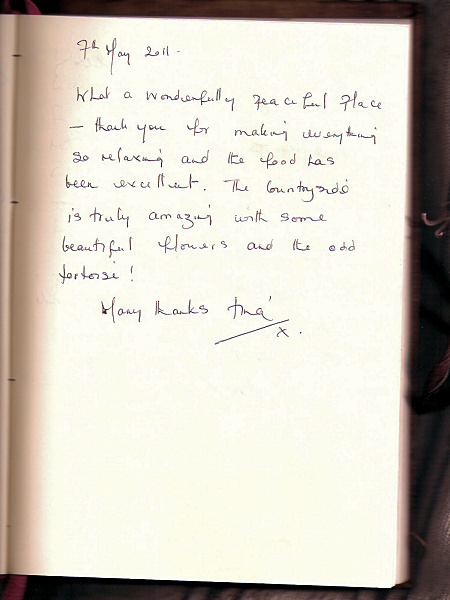 7th May 2011.
What a wonderfully peaceful place
– thank you for making everything
so relaxing and the food has
been excellent. The Countryside
is truly amazing with some
beautiful flowers and the odd
tortoise!
Many thanks Tina
x.